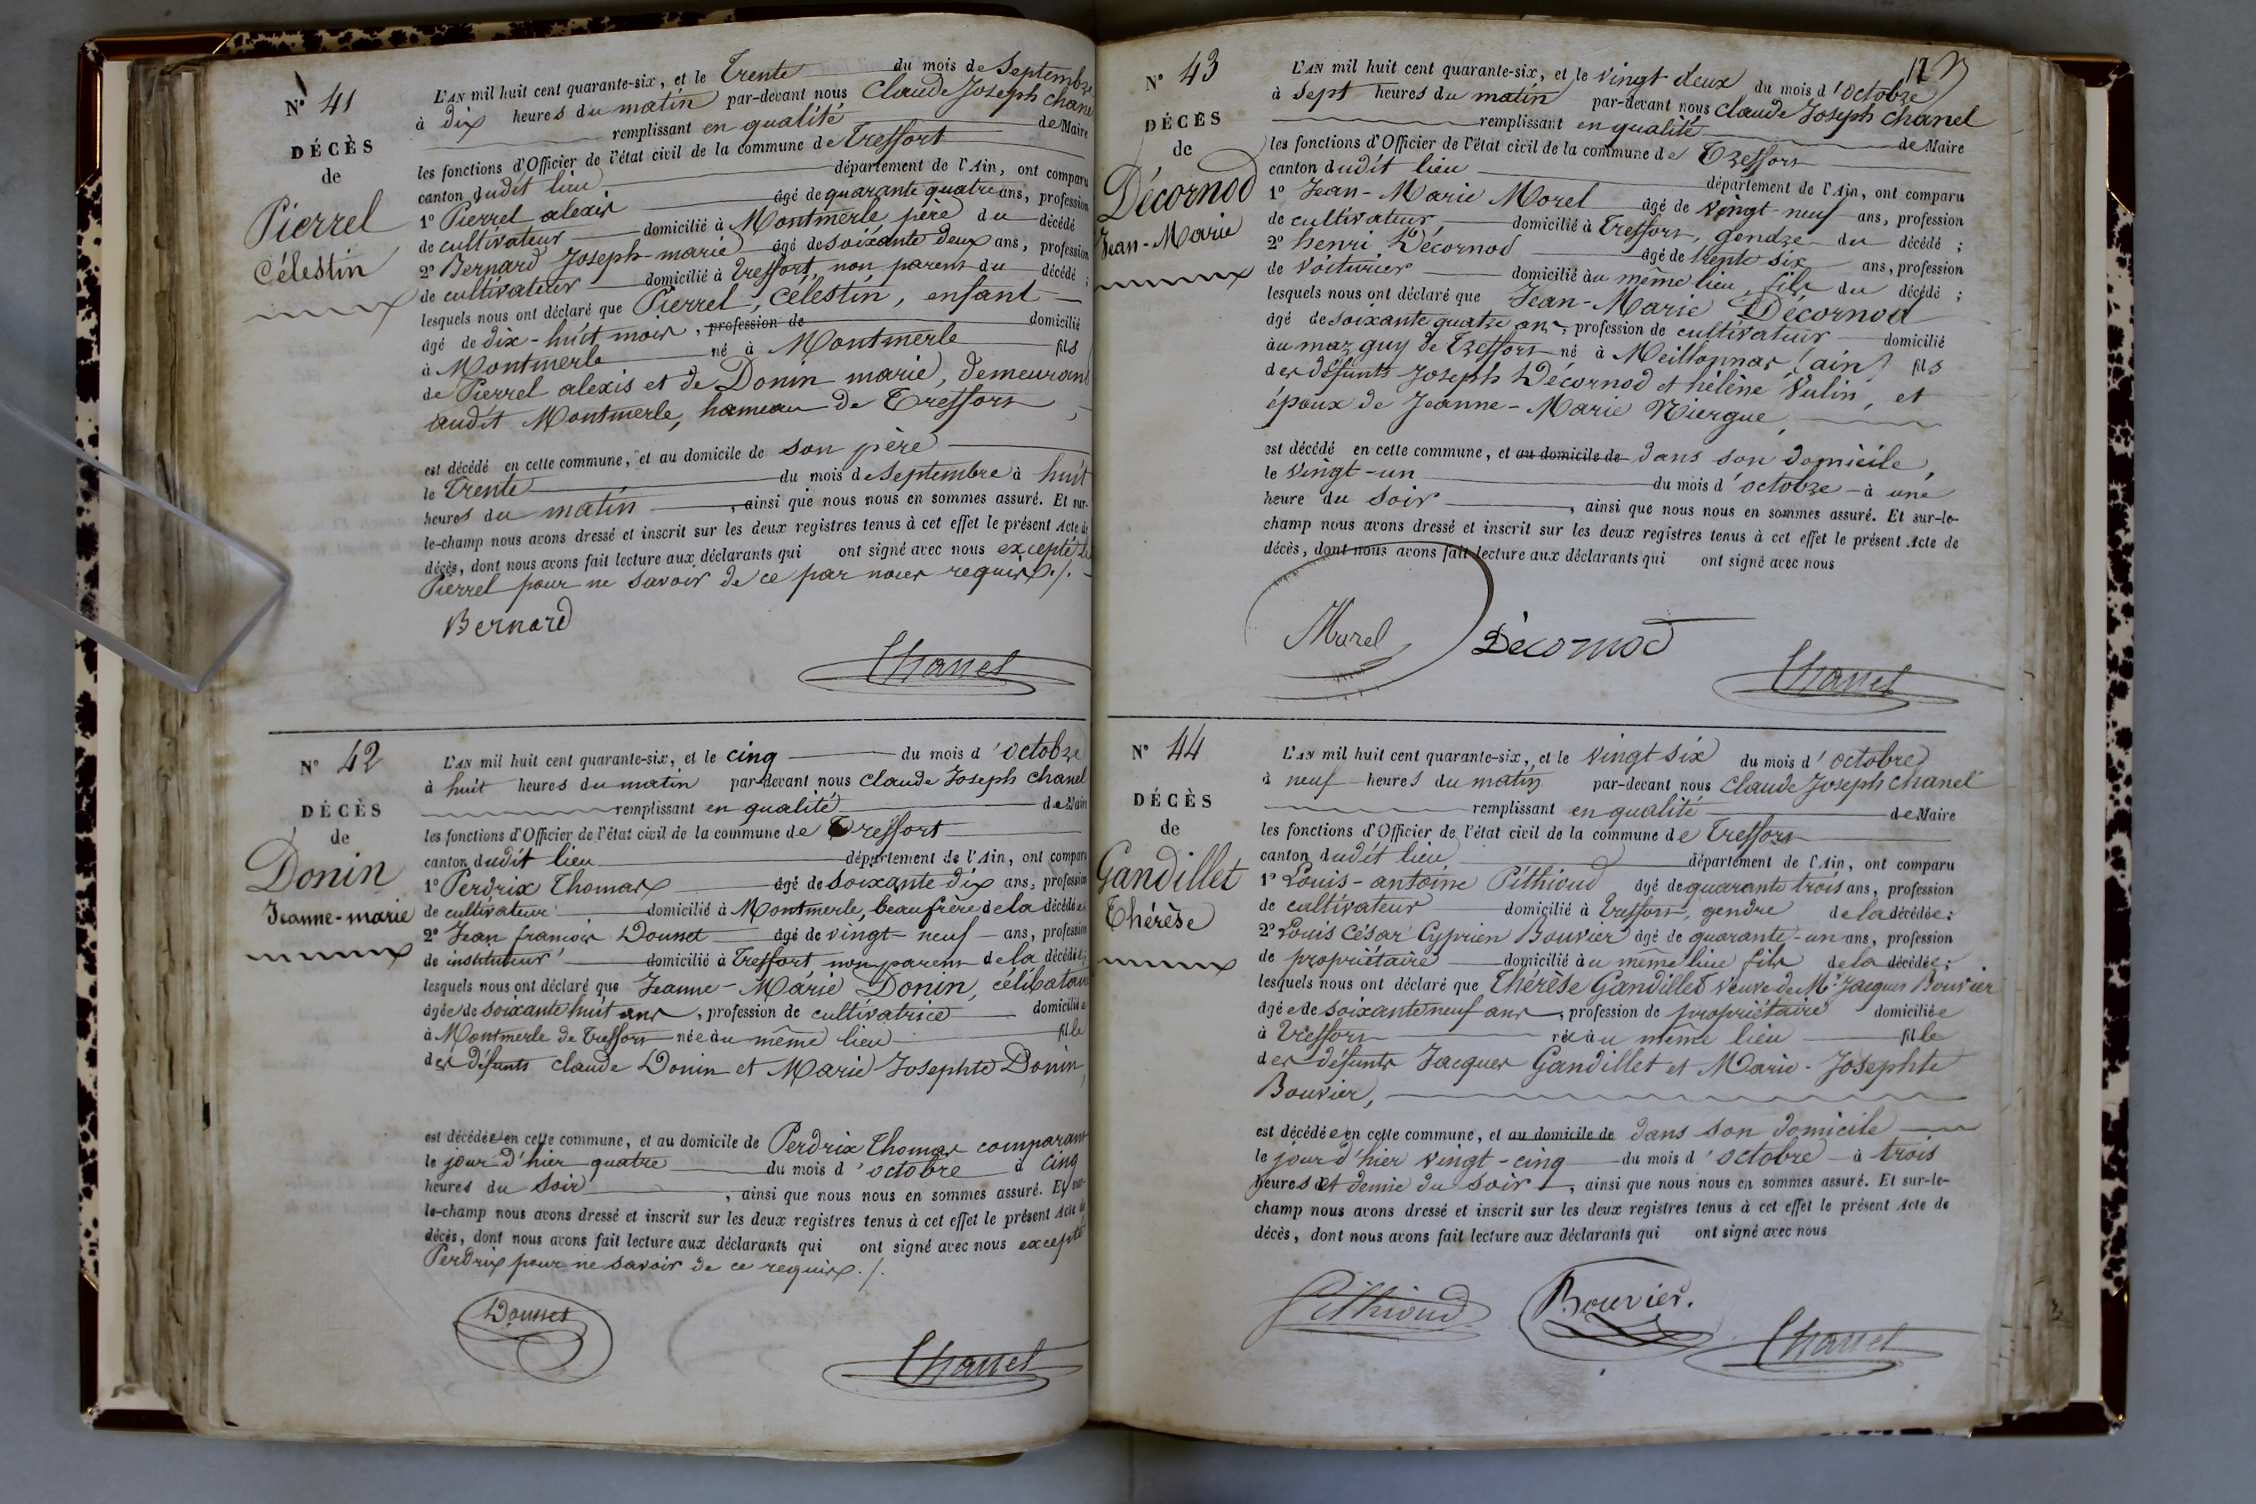 N° 41
DÉCÈS
de
Pierrel
Célestin
L'AN mil huit cent quarante-six, et le Trente du mois de Septembre
à dix heures du matin par-devant nous Claude Joseph Chanel
remplissant en qualité de Maire
les fonctions d'Officier de l'état civil de la commune de Treffort
canton dudit lieu département de l'Ain, ont comparu
1° Pierrel alexis âgé de quarante quatre ans, profession
de cultivateur domicilié à Montmerle père du décédé
2° Bernard Joseph-marie âgé de soixante deux ans, profession
de cultivateur domicilié à Treffort, non parent du décédé ;
lesquels nous ont déclaré que Pierrel, Célestin, enfant
âgé de dix-huit mois, profession de domicilié
à Montmerle né à Montmerle fils
de Pierrel alexis et de Donin marie, demeurant
audit Montmerle, hameau de Treffort,
est décédé en cette commune, et au domicile de son père
le Trente du mois de Septembre à huit
heures du matin, ainsi que nous nous en sommes assuré. Et sur-
le-champ nous avons dressé et inscrit sur les deux registres tenus à cet effet le présent Acte de
décès, dont nous avons fait lecture aux déclarants qui ont signé avec nous excepté le
Pierrel pour ne savoir de ce par nous requis./.
Bernard
Chanel
N° 42
DÉCÈS
de
Donin
Jeanne-marie
L'AN mil huit cent quarante-six, et le cinq du mois d'octobre
à huit heures du matin par-devant nous Claude Joseph Chanel
remplissant en qualité de Maire
les fonctions d'Officier de l'état civil de la commune de Treffort
canton dudit lieu département de l'Ain, ont comparu
1° Perdrix Thomas âgé de soixante dix ans, profession
de cultivateur domicilié à Montmerle, beau frère de la décédée
2° Jean françois Dousset âgé de vingt-neuf ans, profession
de instituteur domicilié à Treffort non parent de la décédée ;
lesquels nous ont déclaré que Jeanne-Marie Donin, célibataire
âgée de soixante huit ans, profession de cultivatrice domiciliée
à Montmerle de Treffort née au même lieu fille
des défunts Claude Donin et Marie Josephte Donin,
est décédée en cette commune, et au domicile de Perdrix Thomas comparant
le jour d'hier quatre du mois d'octobre à cinq
heures du soir, ainsi que nous nous en sommes assuré. Et sur-
le-champ nous avons dressé et inscrit sur les deux registres tenus à cet effet le présent Acte de
décès, dont nous avons fait lecture aux déclarants qui ont signé avec nous excepté
Perdrix pour ne savoir de ce requis./.
Dousset
Chanel
N° 43
DÉCÈS
de
Décornod
Jean-Marie
L'AN mil huit cent quarante-six, et le vingt-deux du mois d'octobre
à sept heures du matin par-devant nous Claude Joseph Chanel
remplissant en qualité de Maire
les fonctions d'Officier de l'état civil de la commune de Treffort
canton dudit lieu département de l'Ain, ont comparu
1° Jean-Marie Morel âgé de vingt-neuf ans, profession
de cultivateur domicilié à Treffort, gendre du décédé ;
2° henri Décornod âgé de trente six ans, profession
de voiturier domicilié au même lieu, fils du décédé ;
lesquels nous ont déclaré que Jean-Marie Décornod
âgé de soixante quatre ans, profession de cultivateur domicilié
au maz guy de Treffort né à Meillonnas, (ain) fils
des défunts Joseph Décornod et hélène Vulin, et
époux de Jeanne-Marie Niergue,
est décédé en cette commune, et au domicile de dans son domicile,
le vingt-un du mois d'octobre à une
heure du soir, ainsi que nous nous en sommes assuré. Et sur-le-
champ nous avons dressé et inscrit sur les deux registres tenus à cet effet le présent Acte de
décès, dont nous avons fait lecture aux déclarants qui ont signé avec nous
Morel
Décornod
Chanel
N° 44
DÉCÈS
de
Gandillet
Thérèse
L'AN mil huit cent quarante-six, et le vingt six du mois d'octobre
à neuf heures du matin par-devant nous Claude Joseph Chanel
remplissant en qualité de Maire
les fonctions d'Officier de l'état civil de la commune de Treffort
canton dudit lieu département de l'Ain, ont comparu
1° Louis-antoine Pithioud âgé de quarante trois ans, profession
de cultivateur domicilié à Treffort, gendre de la décédée ;
2° Louis César Cyprien Bouvier âgé de quarante-un ans, profession
de propriétaire domicilié au même lieu fils de la décédée ;
lesquels nous ont déclaré que Thérèse Gandillet veuve de Mr Jacques Bouvier
âgée de soixante neuf ans, profession de propriétaire domiciliée
à Treffort née au même lieu fille
des défunts Jacques Gandillet et Marie-Josephte
Bouvier,
est décédée en cette commune, et au domicile de dans son domicile
le jour d'hier vingt-cinq du mois d'octobre à trois
heures et demie du soir, ainsi que nous nous en sommes assuré. Et sur-le-
champ nous avons dressé et inscrit sur les deux registres tenus à cet effet le présent Acte de
décès, dont nous avons fait lecture aux déclarants qui ont signé avec nous
Pithioud
Bouvier.
Chanel